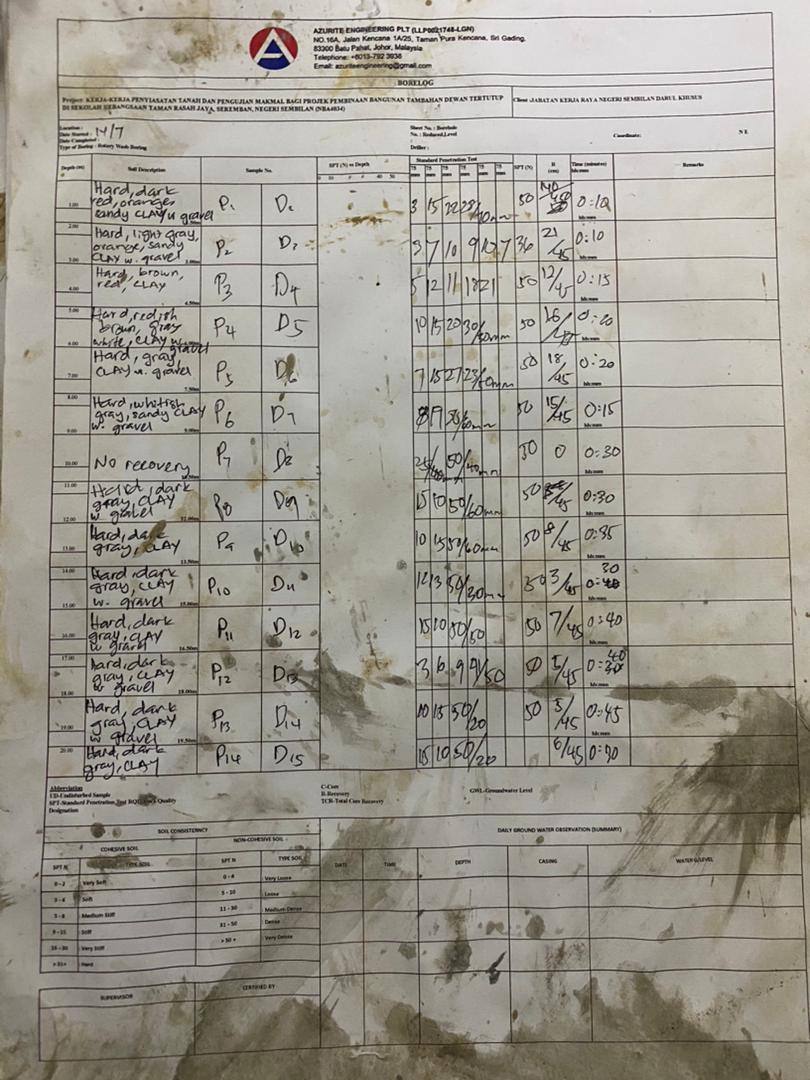 AZURITE ENGINEERING PLT (LLP0021748-LGN)
NO.16A, Jalan Kencana 1A/25, Taman Pura Kencana, Sri Gading,
83300 Batu Pahat, Johor, Malaysia
Telephone: +6013-792 3938
Email: azuriteengineering@gmail.com
BORELOG
Project: KERJA-KERJA PENYIASATAN TANAH DAN PENGUJIAN MAKMAL BAGI PROJEK PEMBINAAN BANGUNAN TAMBAHAN DEWAN TERTUTUP
DI SEKOLAH KEBANGSAAN TAMAN RASAH JAYA, SEREMBAN, NEGERI SEMBILAN (NBA4034)
Client :JABATAN KERJA RAYA NEGERI SEMBILAN DARUL KHUSUS
Location :
Date Started : 14/7
Date Completed :
Type of Boring : Rotary Wash Boring
Sheet No. : Borehole
No. : Reduced Level
Driller :
Coordinate: N E
Depth (m) Soil Description Sample No. SPT (N) vs Depth Standard Penetration Test SPT (N) R (cm) Time (minutes) hh:mm Remarks
75 mm 75 mm 75 mm 75 mm 75 mm 75 mm
1.00 Hard, dark
red, orange,
sandy CLAY w gravel P1 3 15 50 0:10
2.00 Hard, light gray,
orange, sandy
3.00 CLAY w. gravel P2 3 7 10 9 10 7 36 21/45 0:10
4.00 Hard, brown,
red, CLAY P3 D4 5 12 11 18 21 50 12/45 0:15
4.50m
5.00 Hard, redish
brown, gray
6.00 white, CLAY w gravel P4 D5 10 15 20 30/ 50 16/45 0:20
7.00 Hard, gray,
CLAY w. gravel P5 D6 7 15 27 23/60mm 50 18/45 0:20
7.50m
8.00 Hard, whitish
gray, sandy CLAY
9.00 w. gravel P6 D7 50 15/45 0:15
9.00m
10.00 No recovery P7 D8 50/40mm 50 0 0:30
11.00 Hard, dark
gray, CLAY
12.00 w gravel P8 D09 15 10 50/60mm 50 0:30
13.00 Hard, dark
gray, CLAY P9 D10 10 15 50/60mm 50 8/45 0:35
13.50m
14.00 Hard, dark
gray, CLAY
15.00 w. gravel P10 D11 12 13 50/30mm 50 3/45 30
15.00m
16.00 Hard, dark
gray, CLAY
w gravel P11 D12 15 10 50/50 50 7/45 0:40
16.50m
17.00 Hard, dark
gray, CLAY
18.00 w gravel P12 D13 3 6 50 5/45 40
18.00m
19.00 Hard, dark
gray, CLAY
w gravel P13 D14 10 15 50/20 50 5/45 0:45
19.50m
20.00 Hard, dark
gray, CLAY P14 D15 15 10 50/20 6/45 0:30
Abbreviation
UD-Undisturbed Sample
SPT-Standard Penetration Test RQD Quality
Designation
C-Core
R-Recovery
TCR-Total Core Recovery
GWL-Groundwater Level
SOIL CONSISTENCY
COHESIVE SOIL NON-COHESIVE SOIL
SPT N TYPE SOIL SPT N TYPE SOIL
0 - 2 Very Soft 0 - 4 Very Loose
3 - 4 Soft 5 - 10 Loose
5 - 8 Medium Stiff 11 - 30 Medium Dense
9 - 15 Stiff 31 - 50 Dense
16 - 30 Very Stiff > 50 + Very Dense
> 31+ Hard
DAILY GROUND WATER OBSERVATION (SUMMARY)
DATE TIME DEPTH CASING WATER G/LEVEL
SUPERVISOR CERTIFIED BY